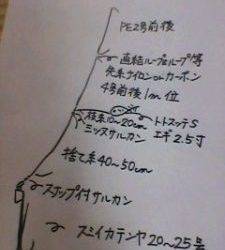 PE2号前後
直結ループtoループ等
先糸ナイロンorカーボン
4号前後1m位
枝糸10〜20cm
トトスッテS
ミツマタサルカン
エギ2.5寸
捨て糸40〜50cm
スナップ付サルカン
スミイカテンヤ20〜25号